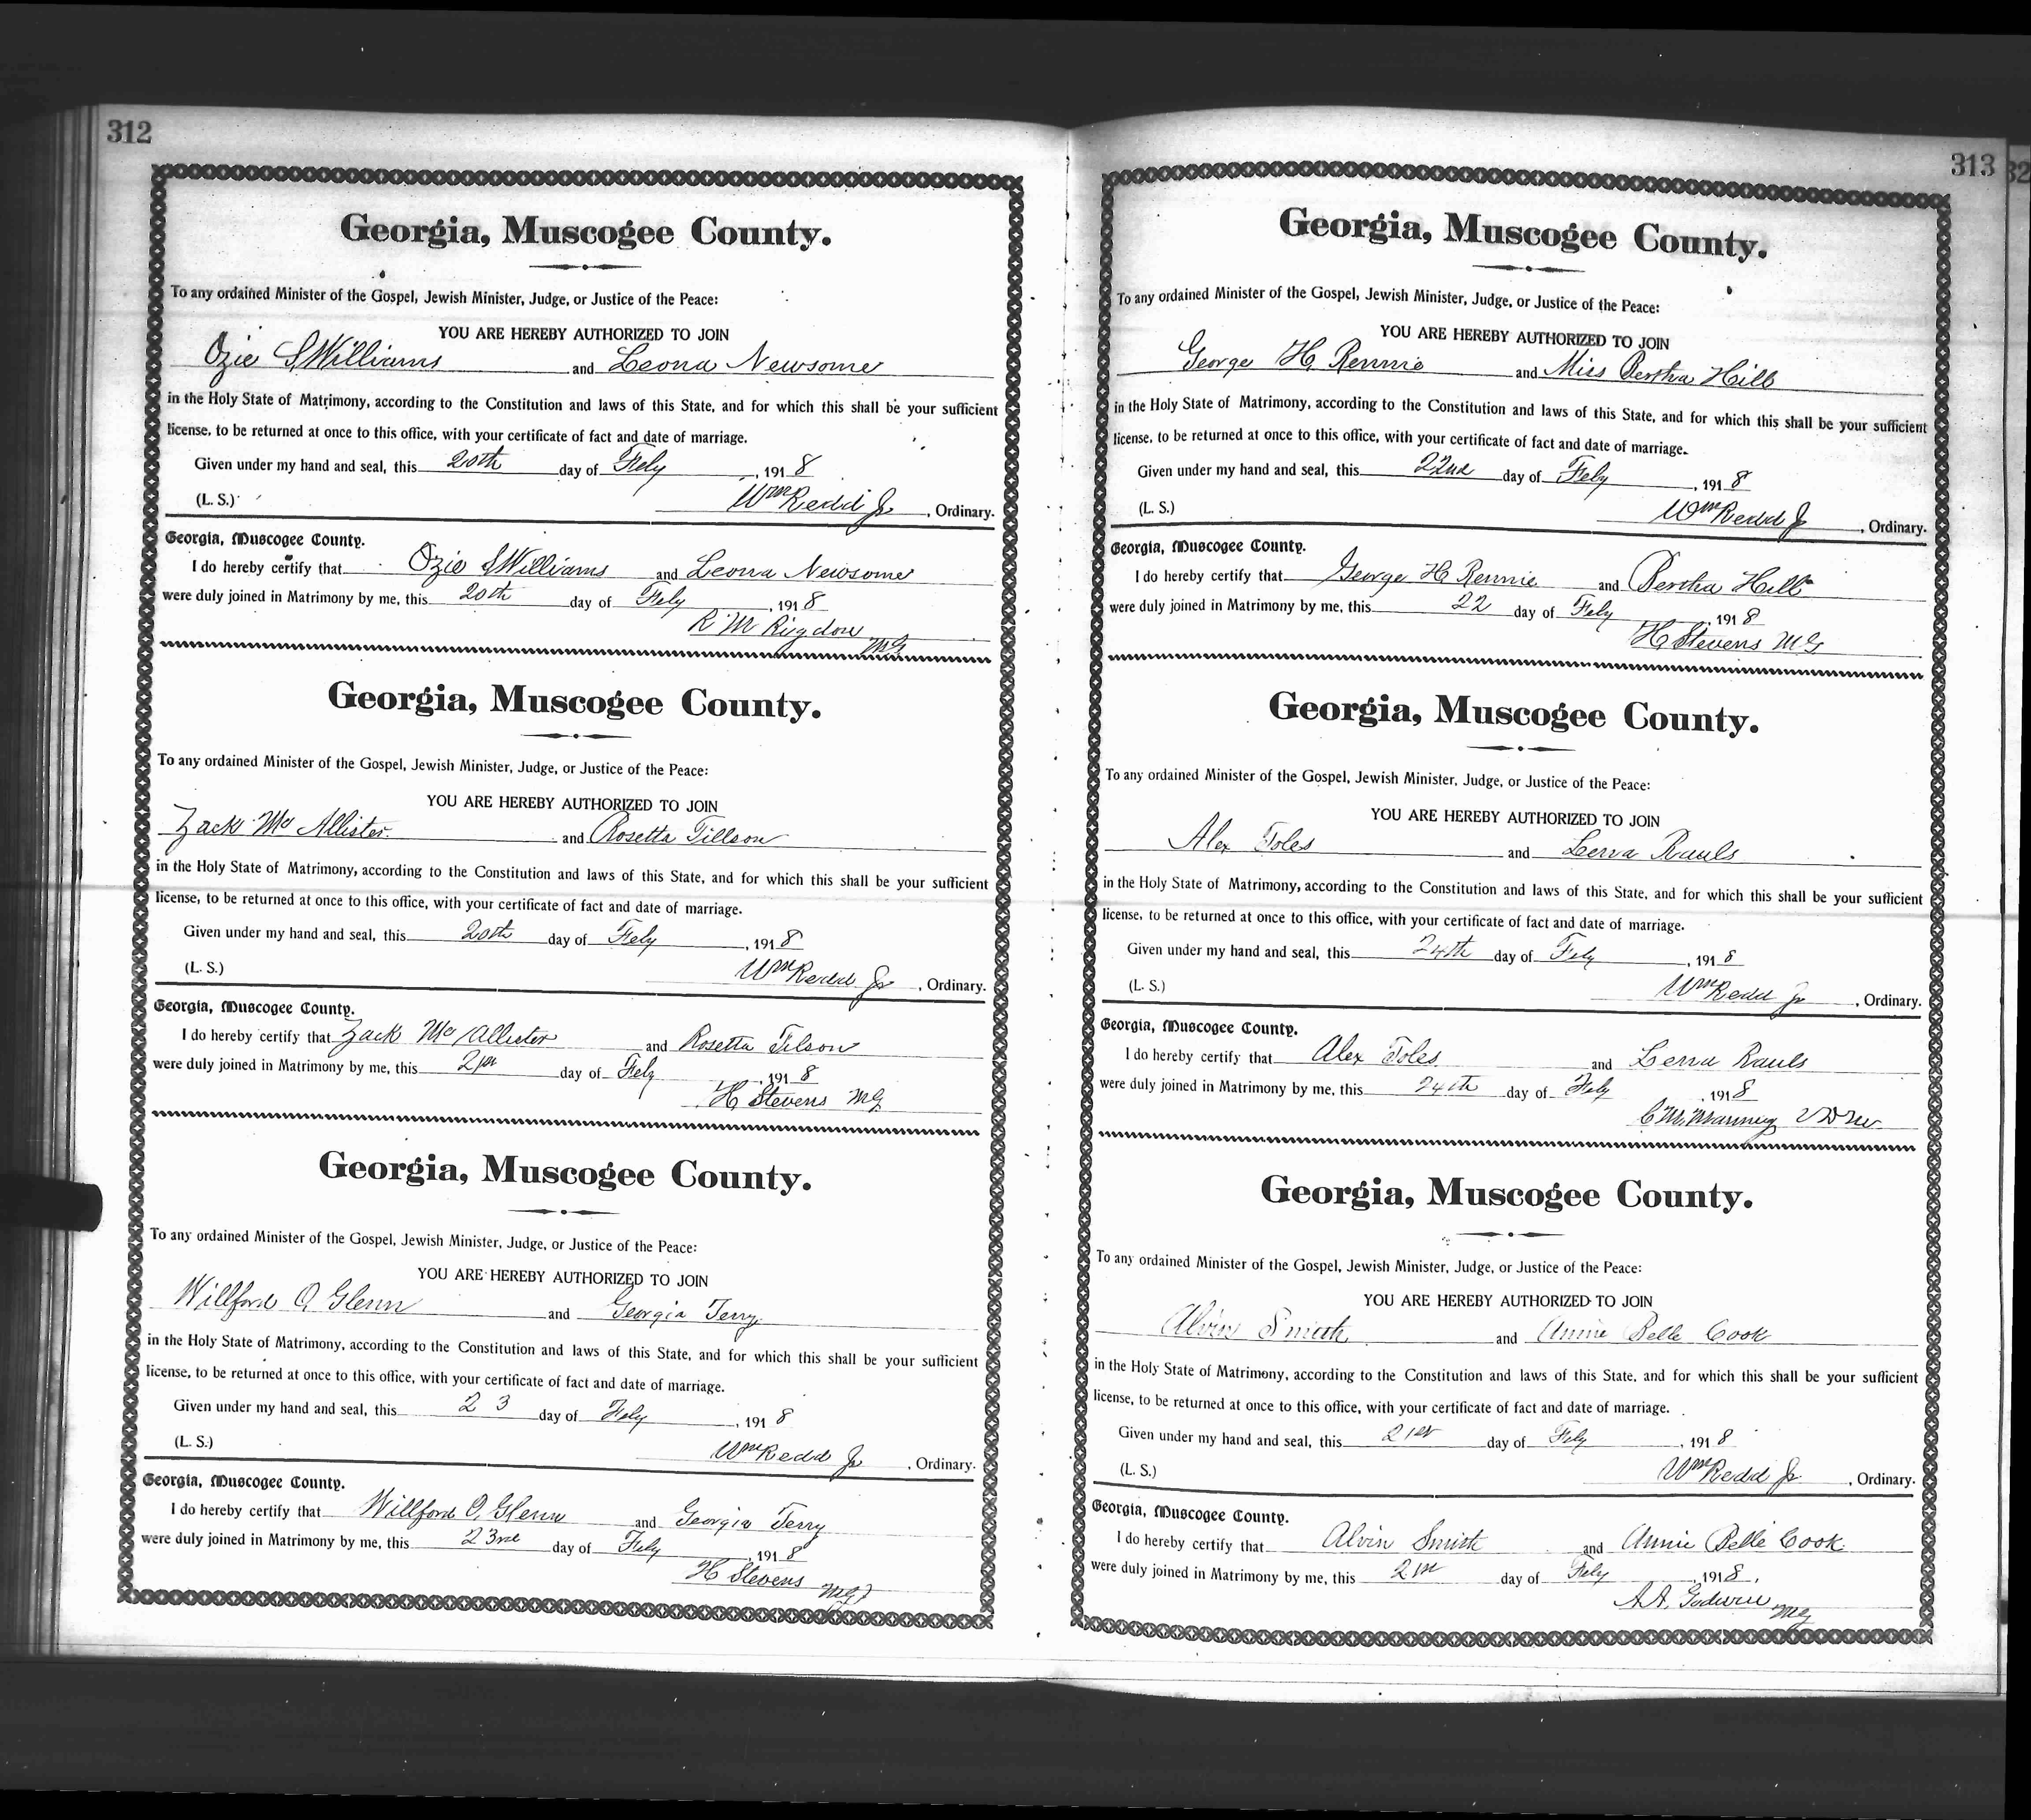 312
Georgia, Muscogee County.
To any ordained Minister of the Gospel, Jewish Minister, Judge, or Justice of the Peace:
YOU ARE HEREBY AUTHORIZED TO JOIN
Ozie S Williams and Leona Newsome
in the Holy State of Matrimony, according to the Constitution and laws of this State, and for which this shall be your sufficient
license, to be returned at once to this office, with your certificate of fact and date of marriage.
Given under my hand and seal, this 20th day of Feby, 1918
(L. S.) Wm Redd Jr, Ordinary.
Georgia, Muscogee County.
I do hereby certify that Ozie S Williams and Leona Newsome
were duly joined in Matrimony by me, this 20th day of Feby, 1918
R M Rigdon
MG
Georgia, Muscogee County.
To any ordained Minister of the Gospel, Jewish Minister, Judge, or Justice of the Peace:
YOU ARE HEREBY AUTHORIZED TO JOIN
Zack Mc Allister and Rosetta Tillson
in the Holy State of Matrimony, according to the Constitution and laws of this State, and for which this shall be your sufficient
license, to be returned at once to this office, with your certificate of fact and date of marriage.
Given under my hand and seal, this 20th day of Feby, 1918
(L. S.) Wm Redd Jr, Ordinary.
Georgia, Muscogee County.
I do hereby certify that Zack Mc Allister and Rosetta Tilson
were duly joined in Matrimony by me, this 21st day of Feby, 1918
H Stevens MG
Georgia, Muscogee County.
To any ordained Minister of the Gospel, Jewish Minister, Judge, or Justice of the Peace:
YOU ARE HEREBY AUTHORIZED TO JOIN
Willford O, Glenn and Georgia Terry
in the Holy State of Matrimony, according to the Constitution and laws of this State, and for which this shall be your sufficient
license, to be returned at once to this office, with your certificate of fact and date of marriage.
Given under my hand and seal, this 23 day of Feby, 1918
(L. S.) Wm Redd Jr, Ordinary.
Georgia, Muscogee County.
I do hereby certify that Willford O, Glenn and Georgia Terry
were duly joined in Matrimony by me, this 23rd day of Feby, 1918
H Stevens
MG
313
Georgia, Muscogee County.
To any ordained Minister of the Gospel, Jewish Minister, Judge, or Justice of the Peace:
YOU ARE HEREBY AUTHORIZED TO JOIN
George H Rennie and Miss Bertha Hill
in the Holy State of Matrimony, according to the Constitution and laws of this State, and for which this shall be your sufficient
license, to be returned at once to this office, with your certificate of fact and date of marriage.
Given under my hand and seal, this 22nd day of Feby, 1918
(L. S.) Wm Redd Jr, Ordinary.
Georgia, Muscogee County.
I do hereby certify that George H Rennie and Bertha Hill
were duly joined in Matrimony by me, this 22 day of Feby, 1918
H Stevens MG
Georgia, Muscogee County.
To any ordained Minister of the Gospel, Jewish Minister, Judge, or Justice of the Peace:
YOU ARE HEREBY AUTHORIZED TO JOIN
Alex Toles and Lerra Rauls
in the Holy State of Matrimony, according to the Constitution and laws of this State, and for which this shall be your sufficient
license, to be returned at once to this office, with your certificate of fact and date of marriage.
Given under my hand and seal, this 24th day of Feby, 1918
(L. S.) Wm Redd Jr, Ordinary.
Georgia, Muscogee County.
I do hereby certify that Alex Toles and Lerra Rauls
were duly joined in Matrimony by me, this 24th day of Feby, 1918
C M Manning VDM
Georgia, Muscogee County.
To any ordained Minister of the Gospel, Jewish Minister, Judge, or Justice of the Peace:
YOU ARE HEREBY AUTHORIZED TO JOIN
Alvin Smith and Annie Belle Cook
in the Holy State of Matrimony, according to the Constitution and laws of this State, and for which this shall be your sufficient
license, to be returned at once to this office, with your certificate of fact and date of marriage.
Given under my hand and seal, this 21st day of Feby, 1918
(L. S.) Wm Redd Jr, Ordinary.
Georgia, Muscogee County.
I do hereby certify that Alvin Smith and Annie Belle Cook
were duly joined in Matrimony by me, this 21st day of Feby, 1918.
A A, Godwin
MG